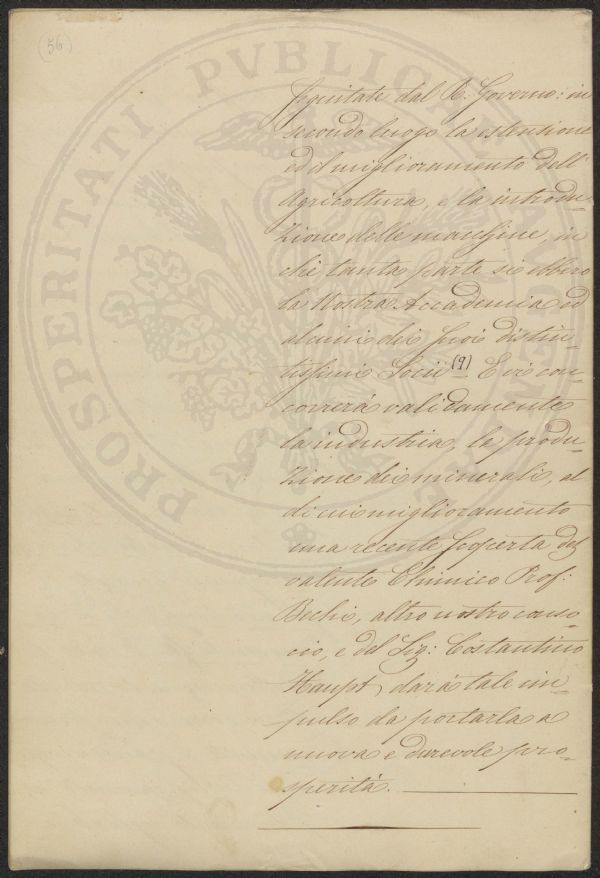 (56)
seguitate dal R: Governo: in
secondo luogo la estensione
ed il miglioramento dell'
Agricoltura, e la introdu-
zione delle macchine, in
che tanta parte si ebbero
la Nostra Accademia ed
alcuni dei suoi distin-
tissimi Socii (9) E vi con-
correrà validamente
la industria, le produ-
zione dei minerali, al
di cui miglioramento
una recente scoperta del
valente Chimico Prof:
Bechi, altro nostro conso-
cio, e del Sig: Costantino
Haupt, darà tale im-
pulso da portarla a
nuova e durevole pro-
sperità.
PROSPERITATI PVBLICAE AVGENDAE